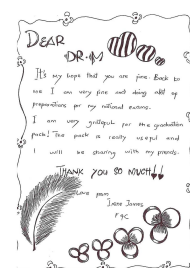 DEAR
DR. M
It's my hope that you are fine. Back to
me I am very fine and doing alot of
preparations for my national exams.
I am very grateful for the graduation
pack! The pack is really useful and
I will be sharing with my friends.
THANK YOU SO MUCH!!
Love from
Irene James
F4C